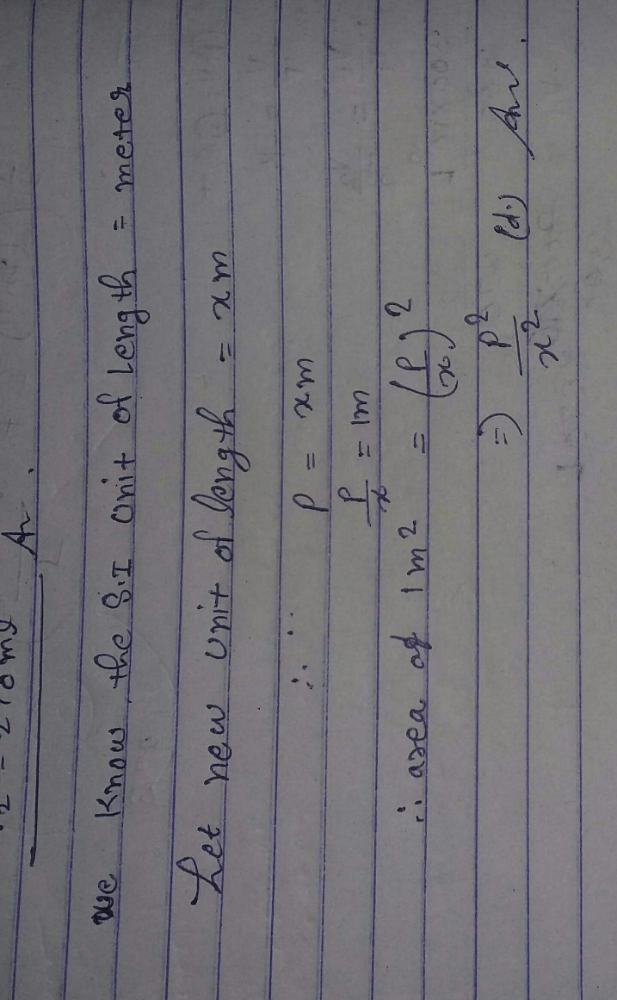 Ar.
we know the S.I unit of length = meter
Let new unit of length = xm
∴ P = xm
P/x = 1m
∴ area of 1m² = (P/x)²
=) P²/x² (d.) Ans.